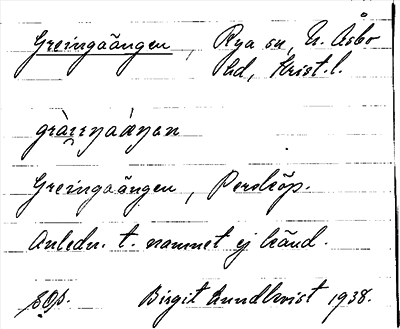 Greingaängen, Rya sn, N. Åsbo
hd, Krist. l.
Greingaängen, Perstorp.
Anledn. t. namnet ej känd.
Birgit Lundkvist 1938.